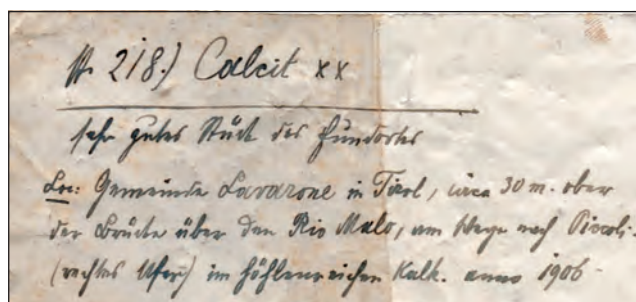 N. 218.) Calcit xx
sehr gutes Stück des Fundortes
Loc: Gemeinde Lavarone in Tirol, circa 30 m. ober
der Brücke über den Rio Malo, am Wege nach Piccoli-
(rechtes Ufer) im höhlenreichen Kalk. anno 1906